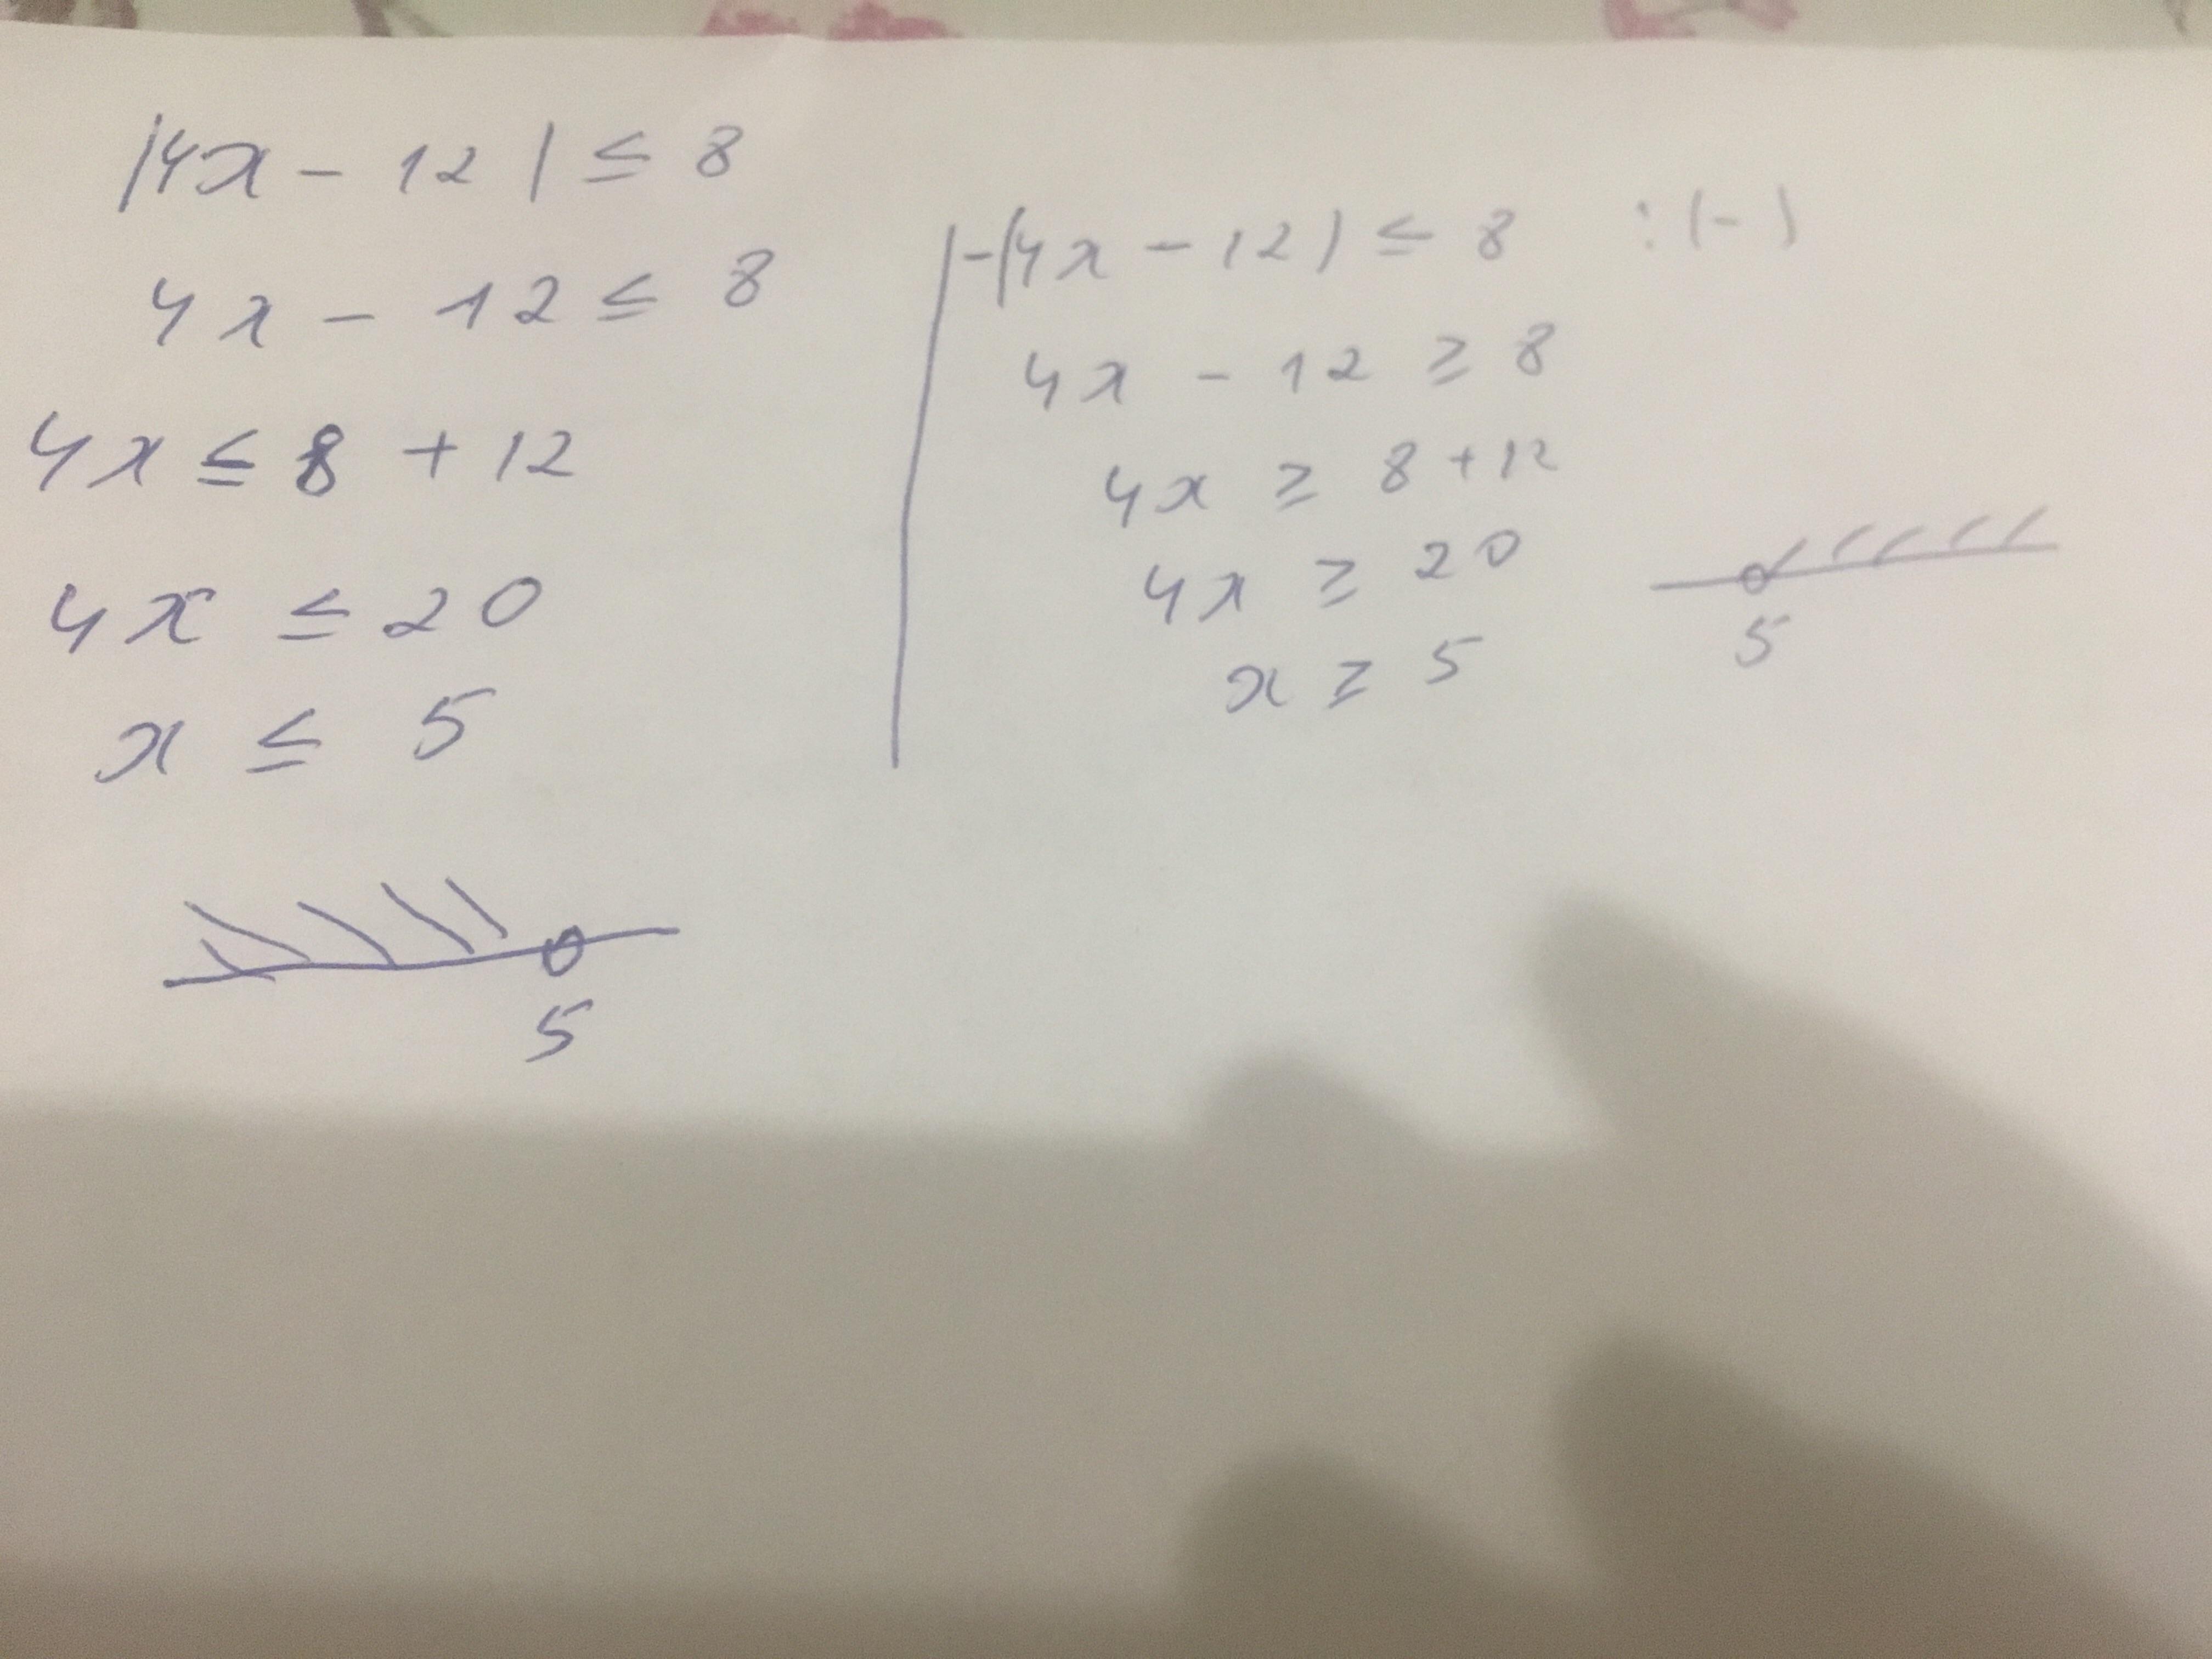 |4x - 12| ≤ 8
4x - 12 ≤ 8
4x ≤ 8 + 12
4x ≤ 20
x ≤ 5
5
-(4x - 12) ≤ 8 :(-)
4x - 12 ≥ 8
4x ≥ 8 + 12
4x ≥ 20
x ≥ 5
5